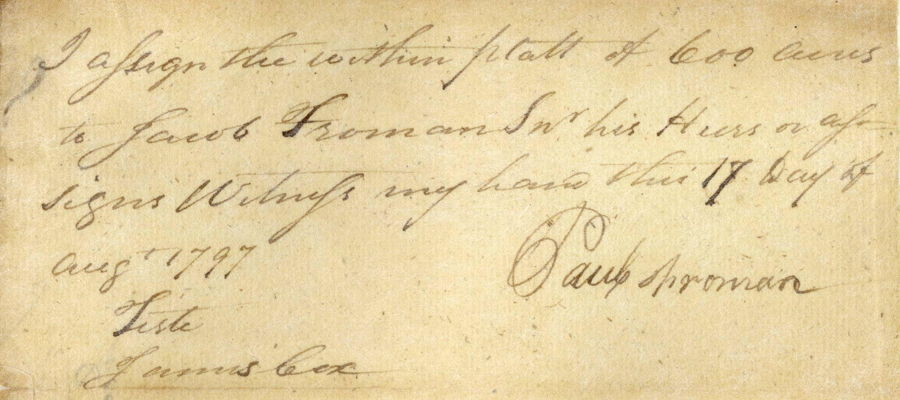 I assign the within platt of 600 acres
to Jacob Froman Snr his Heirs or as-
signs Witness my hand this 17 Day of
Augt 1797
Paul Froman
Teste
James Cox